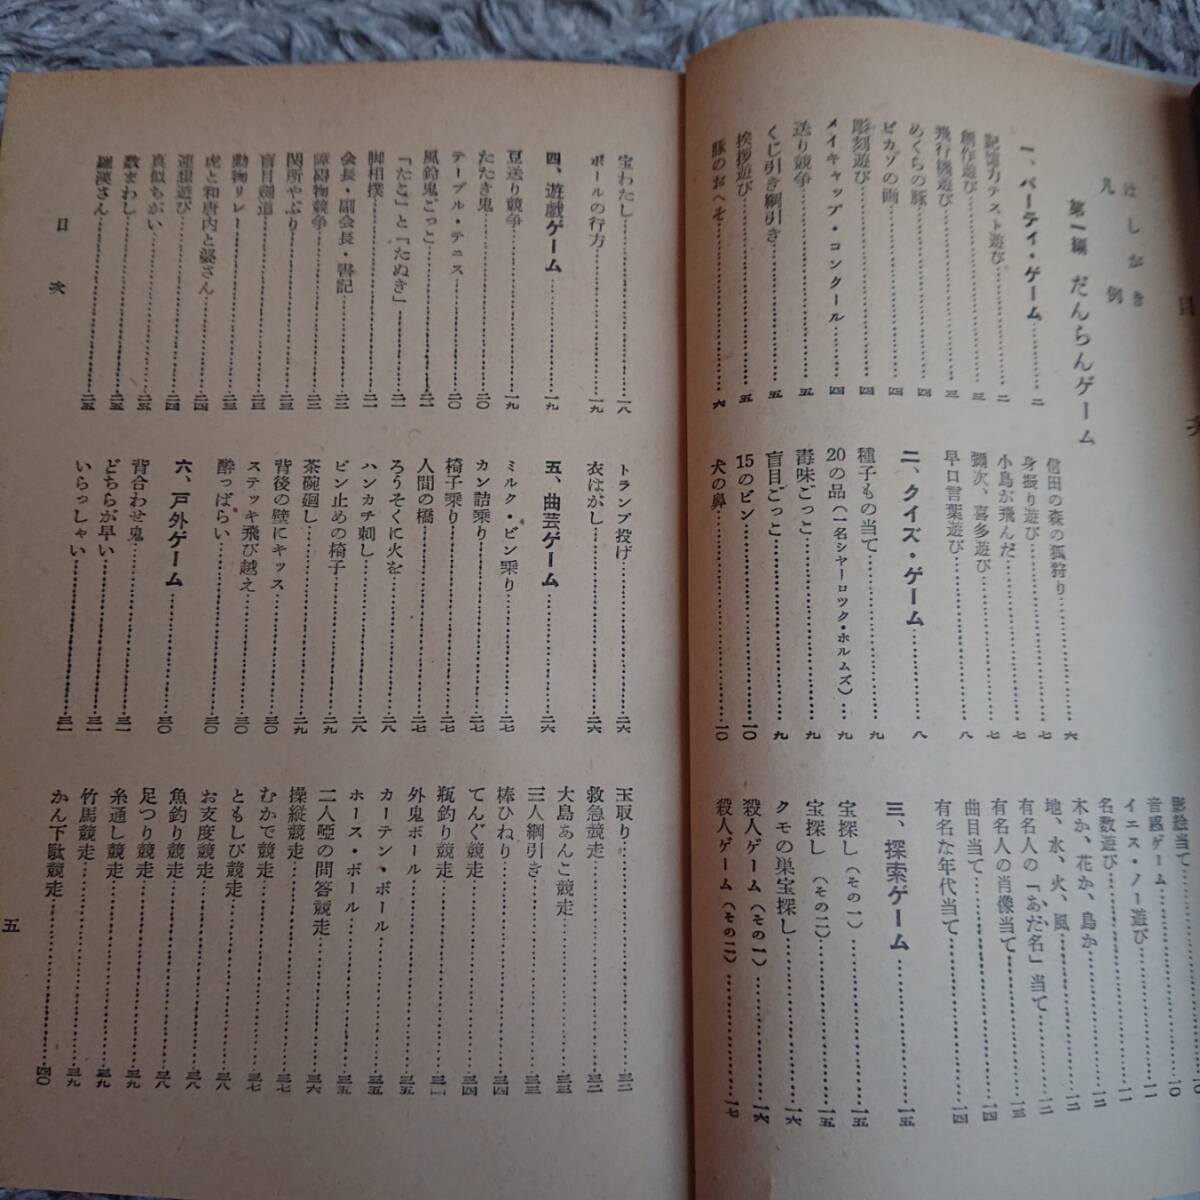 目　次
はしがき
凡例
第一編　だんらんゲーム
一、パーティ・ゲーム……二
記憶力テスト遊び……二
創作遊び……三
飛行機遊び……三
めくらの豚……四
ピカソの画……四
彫刻遊び……四
メイキャップ・コンクール……四
送り競争……五
くじ引き綱引き……五
挨拶遊び……五
豚のおへそ……六
信田の森の狐狩り……六
身振り遊び……七
小鳥が飛んだ……七
彌次、喜多遊び……七
早口言葉遊び……八
二、クイズ・ゲーム……八
種子もの当て……九
20の品（一名シャーロック・ホルムズ）……九
毒味ごっこ……九
盲目ごっこ……九
15のビン……10
犬の鼻……10
影絵当て……10
音感ゲーム……10
イエス・ノー遊び……一一
名数遊び……一一
木か、花か、鳥か……一二
地、水、火、風……一二
有名人の「あだ名」当て……一二
有名人の肖像当て……一三
曲目当て……一四
有名な年代当て……一四
三、探索ゲーム……一五
宝探し（その一）……一五
宝探し（その二）……一五
クモの巣宝探し……一六
殺人ゲーム（その一）……一六
殺人ゲーム（その二）……一七
宝わたし……一八
ボールの行方……一九
四、遊戯ゲーム……一九
豆送り競争……一九
たたき鬼……二0
テーブル・テニス……二0
風鈴鬼ごっこ……二一
「たこ」と「たぬき」……二一
脚相撲……二一
会長・副会長・書記……二二
障碍物競争……二二
関所やぶり……二三
盲目剣道……二三
動物リレー……二三
虎と和唐内と婆さん……二四
連想遊び……二四
真似ちがい……二五
数まわし……二五
羅漢さん……二五
トランプ投げ……二六
衣はがし……二六
五、曲芸ゲーム……二六
ミルク・ビン乗り……二七
カン詰乗り……二七
椅子乗り……二七
人間の橋……二七
ろうそくに火を……二八
ハンカチ刺し……二八
ピン止めの椅子……二九
茶碗廻し……二九
背後の壁にキッス……三0
ステッキ飛び越え……三0
酔っぱらい……三0
六、戸外ゲーム……三0
背合わせ鬼……三一
どちらが早い……三一
いらっしゃい……三一
玉取り……三二
救急競走……三二
大島あんこ競走……三三
三人綱引き……三三
棒ひねり……三四
てんぐ競走……三四
瓶釣り競走……三四
外鬼ボール……三五
カーテン・ボール……三五
ホース・ボール……三五
二人啞の問答競走……三六
操縦競走……三七
むかで競走……三七
ともしび競走……三八
お支度競走……三八
魚釣り競走……三八
足つり競走……三九
糸通し競走……三九
竹馬競走……三九
かん下駄競走……四0
目次
五